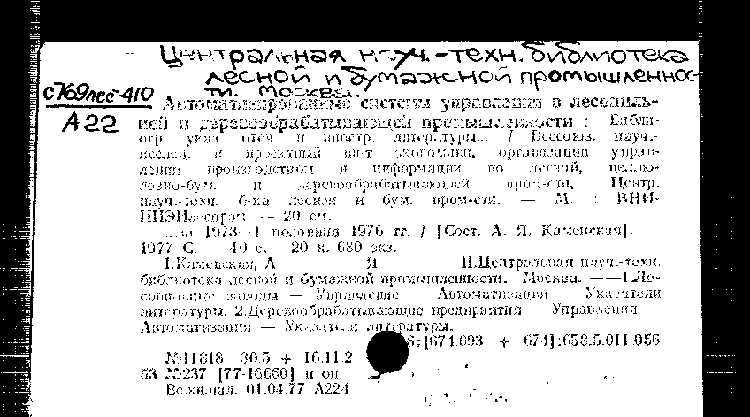 Центральная науч.-техн. библиотека
лесной и бумажной промышленнос-
ти. Москва.
с769лес-410
А22
Автоматизированные системы управления в лесопиль-
ной и деревообрабатывающей промышленности : Библи-
огр. указ. отеч. и иностр. литературы... / Всесоюз. науч.-
исслед. и проектный ин-т экономики, организации управ-
ления производством и информации по лесной, целлю-
лозно-бум. и деревообрабатывающей пром-сти, Центр.
науч.-техн. б-ка лесной и бум. пром-сти. — М. : ВНИ-
ПИЭИлеспром — 20 см.
за 1973—1 половина 1976 гг. / [Сост. А. Я. Каменская].
1977 С. 40 с. 20 к. 680 экз.
I.Каменская, А Я II.Центральная науч.-техн.
библиотека лесной и бумажной промышленности. Москва. ——1.Ле-
сопильные заводы — Управление Автоматизация Указатели
литературы. 2.Деревообрабатывающие предприятия Управление
Автоматизация — Указатели литературы.
[674.093 + 674]:658.5.011.056
№11818 30.5 + 16.11.2
№237 [77-16660] и он
Вс.кн.пал. 01.04.77 А224